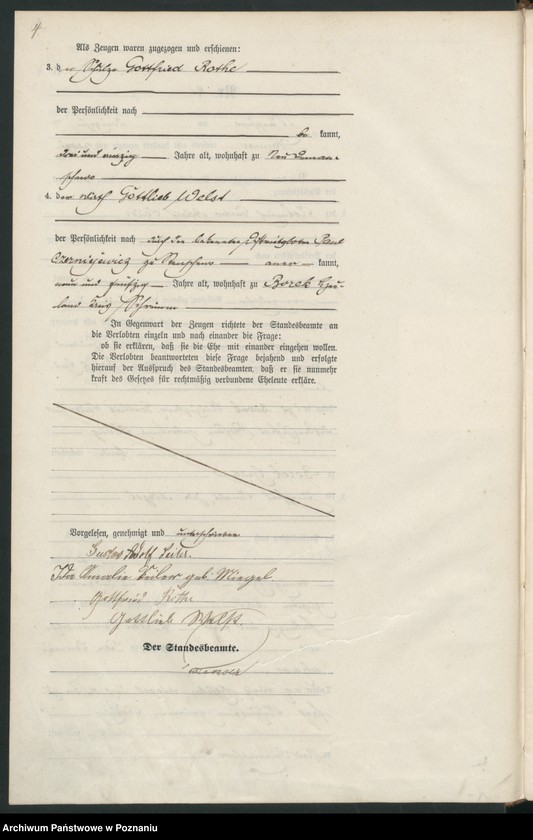 4
Als Zeugen waren zugezogen und erschienen:
3. der Schulze Gottfried Rothe
der Persönlichkeit nach
be kannt,
drei und vierzig Jahre alt, wohnhaft zu Neu
4. der Wirth Gottlieb Welst
der Persönlichkeit nach durch den
zu kannt,
neun und fünfzig Jahre alt, wohnhaft zu Borck Hau-
land Kreis Schrimm
In Gegenwart der Zeugen richtete der Standesbeamte an
die Verlobten einzeln und nach einander die Frage:
ob sie erklären, daß sie die Ehe mit einander eingehen wollen.
Die Verlobten beantworteten diese Frage bejahend und erfolgte
hierauf der Ausspruch des Standesbeamten, daß er sie nunmehr
kraft des Gesetzes für rechtmäßig verbundene Eheleute erkläre.
Vorgelesen, genehmigt und unterschrieben
Gustav Adolf Zeiler.
Ida Amalie Zeiler geb. Miegel.
Gottfried Rothe
Gottlieb Welst.
Der Standesbeamte.
Archiwum Państwowe w Poznaniu